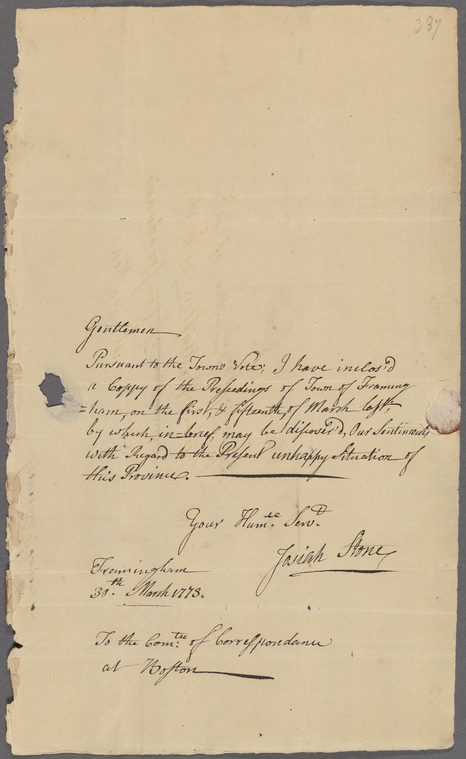 337
Gentlemen
Pursuant to the Towns Vote; I have inclos'd
a Coppy of the Proseedings of Town of Framing
=ham, on the first, & fifteenth, of March last,
by which, in=brief, may be discover'd, Our Sentiments
with Regard to the Present unhappy Situation of
this Province.
Your Humee. Servt.
Josiah Stone
Framingham
30th March 1773.
To the Comtee of Correspondance
at Boston